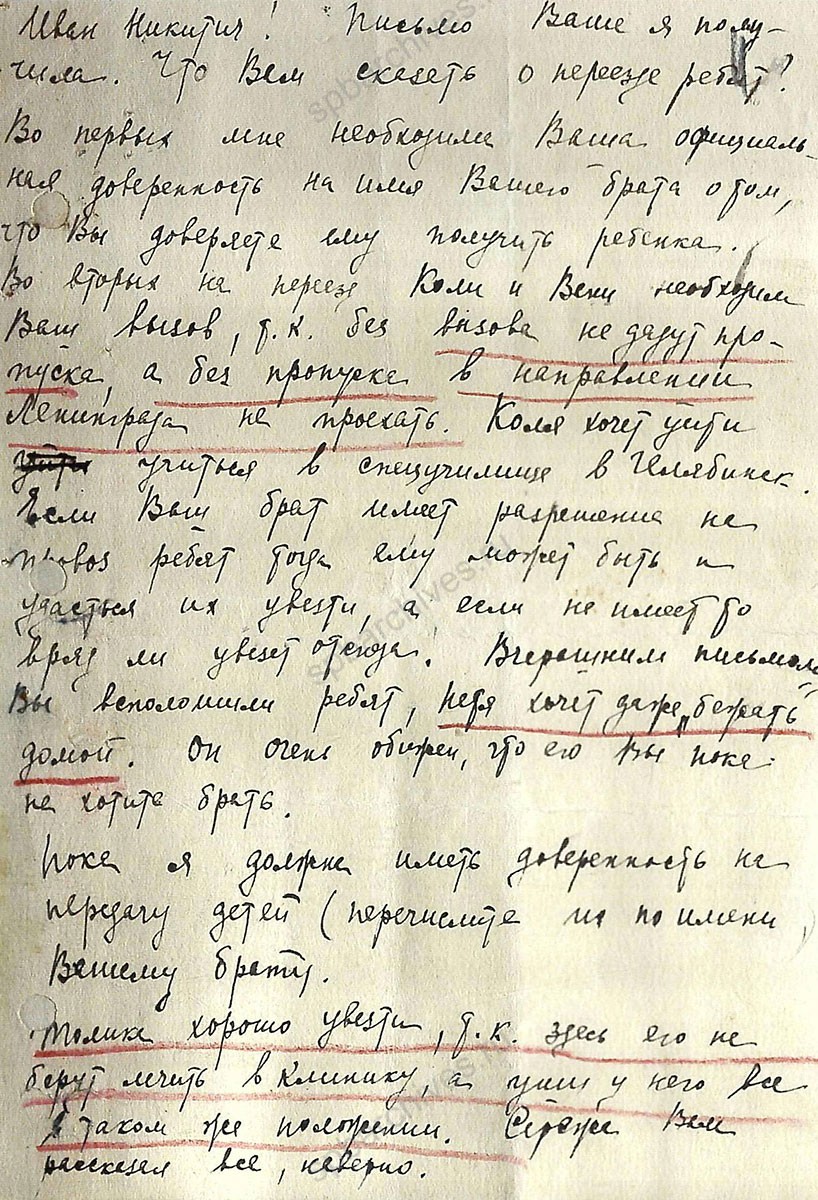 Иван Никитич! Письмо Ваше я полу-
чила. Что Вам сказать о переезде ребят?
Во первых мне необходима Ваша официаль-
ная доверенность на имя Вашего брата о том,
что Вы доверяете ему получить ребенка.
Во вторых на переезд Коли и Вени необходим
Ваш вызов, т.к. без вызова не дадут про-
пуска, а без пропуска в направлении
Ленинграда не проехать. Коля хочет уйти
учиться в спецучилище в Челябинск.
Если Ваш брат имеет разрешение на
провоз ребят тогда ему может быть и
удасться их увезти, а если не имеет то
вряд ли увезет отсюда. Вчерашним письмом
Вы всполошили ребят, Петя хочет даже „бежать
домой. Он очень обижен, что его Вы пока
не хотите брать.
Пока я должна иметь доверенность на
передачу детей (перечислите их по имени)
Вашему брату.
Толика хорошо увезти, т.к. здесь его не
берут лечить в клинику, а уши у него все
в таком же положении. Сережа Вам
рассказал все, наверно.
spbarchives.ru
spbarchives.ru